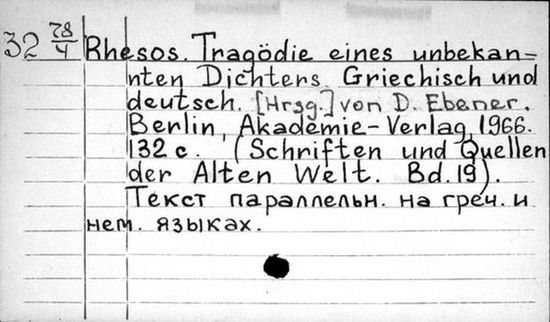 32 78/4 Rhesos. Tragödie eines unbekan-
nten Dichters. Griechisch und
deutsch. [Hrsg.] von D. Ebener.
Berlin, Akademie-Verlag, 1966.
132 с. (Schriften und Quellen
der Alten Welt. Bd. 19).
Текст параллельн. на греч. и
нем. языках.